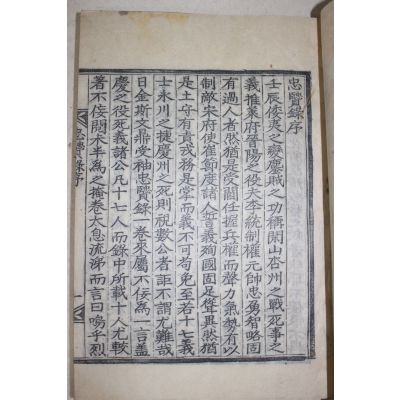 忠賢錄序
壬辰倭夷之變鏖賊之功稱閑山杏州之戰死事之
義推萊府晉陽之役大李統制權元帥忠勇智略固
有過人者然猶是受閫任握兵權而聲力氣勢有以
制敵宋府使崔節度諸人哲義殉國固足聳異然猶
是土守有責戎務是掌而義不可苟免至若十七義
士永川之捷慶州之死則視數公者詎不謂尤難哉
日金斯文鼎受袖忠賢錄一卷來屬不佞為一言盖
慶之役死義諸公凡十七人而錄中所載十人尤較
著不佞閱未半為之掩卷太息流涕而言曰嗚乎烈
忠賢錄序
一